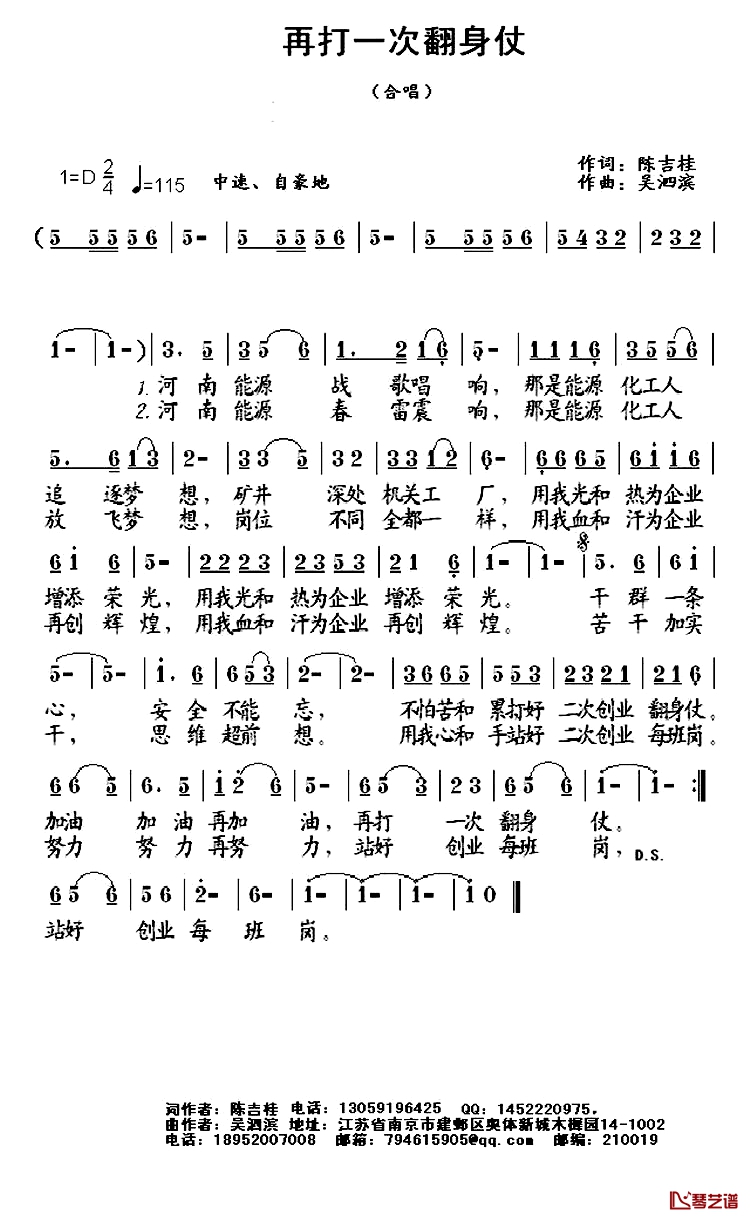 再打一次翻身仗
（合唱）
作词：陈吉桂
1=D 2/4 ♩=115 中速、自豪地 作曲：吴泗滨
(5 5556 | 5- | 5 5556 | 5- | 5 5556 | 5432 | 232 |
1- | 1-) | 3. 5 | 35 6 | 1. 216 | 5- | 1116 | 3556 |
1.河南能源 战歌唱响，那是能源化工人
2.河南能源 春雷震响，那是能源化工人
5. 613 | 2- | 33 5 | 32 | 3312 | 6- | 6665 | 6116 |
追逐梦想，矿井深处机关工厂，用我光和热为企业
放飞梦想，岗位不同全都一样，用我血和汗为企业
61 6 | 5- | 2223 | 2353 | 21 6 | 1- | 1- | 5. 6 | 61 |
增添荣光，用我光和热为企业增添荣光。干群一条
再创辉煌，用我血和汗为企业再创辉煌。苦干加实
5- | 5- | 1. 6 | 653 | 2- | 2- | 3665 | 553 | 2321 | 216 |
心，安全不能忘，不怕苦和累打好二次创业翻身仗。
干，思维超前想。用我心和手站好二次创业每班岗。
66 5 | 6. 5 | 12 6 | 5- | 35 6 | 23 | 65 6 | 1- | 1- :||
加油加油再加油，再打一次翻身仗。
努力努力再努力，站好创业每班岗，D.S.
65 6 | 56 | 2- | 6- | 1- | 1- | 1- | 10 ||
站好创业每班岗。
词作者：陈吉桂 电话：13059196425 QQ：1452220975．
曲作者：吴泗滨 地址：江苏省南京市建邺区奥体新城木樨园14-1002
电话：18952007008 邮箱：794615905@qq.com 邮编：210019
琴艺谱